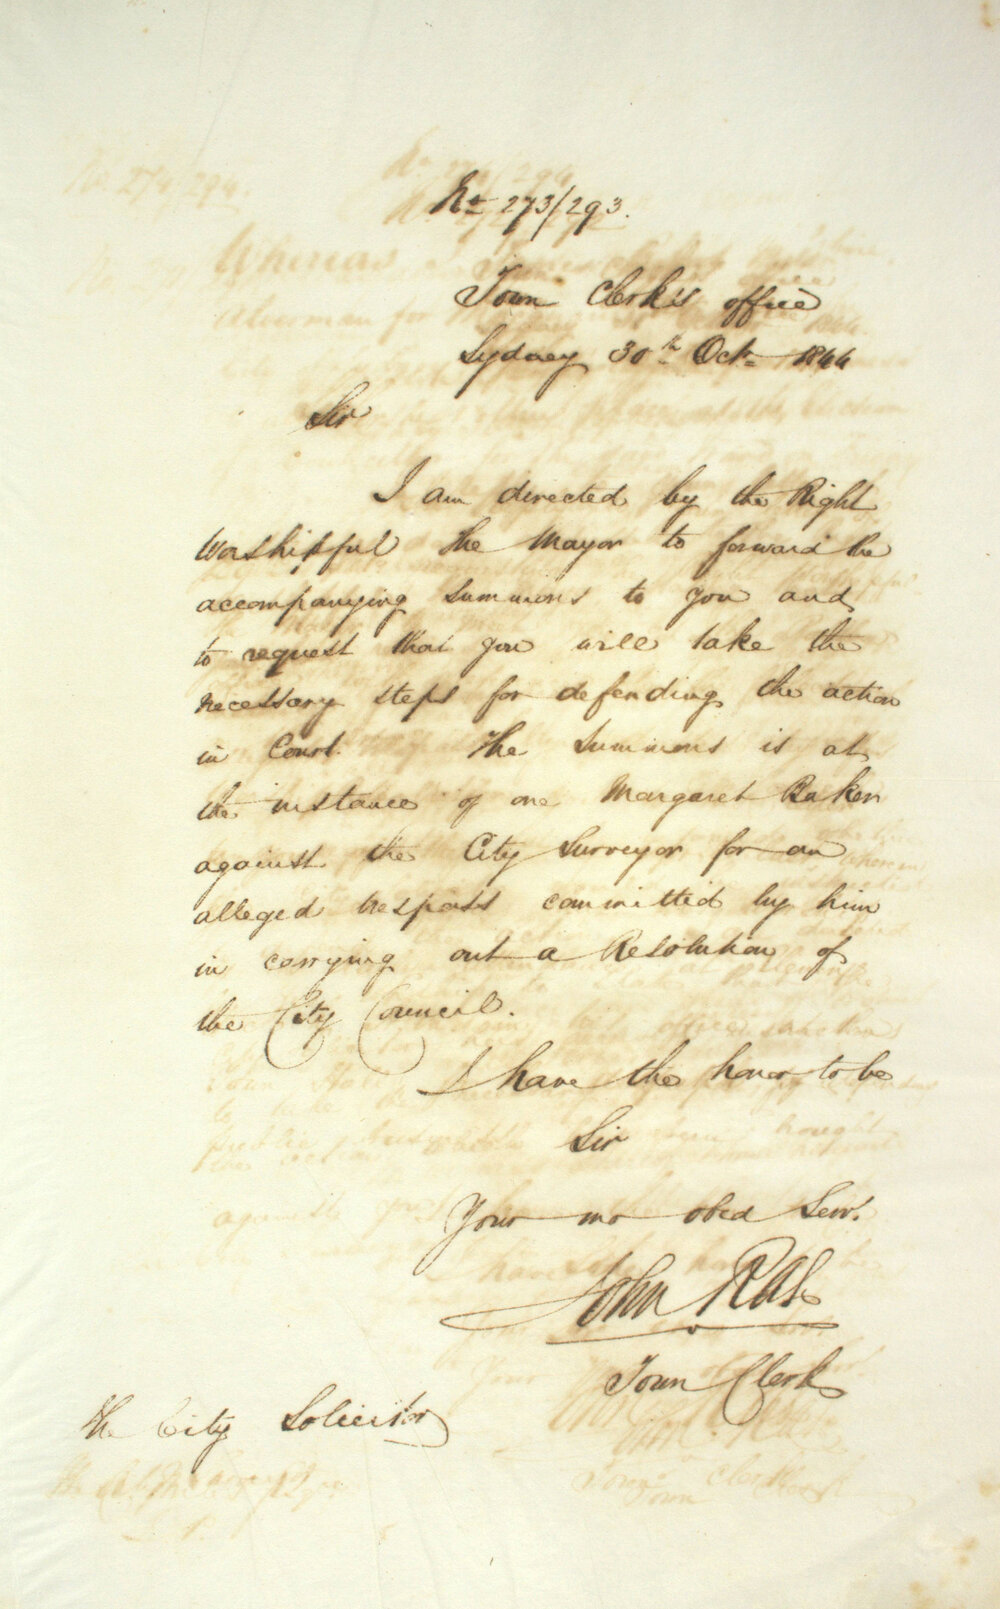 No 273/293.
Town Clerk's office
Sydney 30th Octr 1844
Sir
I am directed by the Right
Worshipful the Mayor to forward the
accompanying summons to you and
to request that you will take the
necessary steps for defending the action
in Court. The summons is at
the instance of one Margaret Baker
against the City Surveyor for an
alleged trespass committed by him
in carrying out a Resolution of
the City Council.
I have the honor to be
Sir
Your mo obed Servt.
John Rae
Town Clerk
The City Solicitor